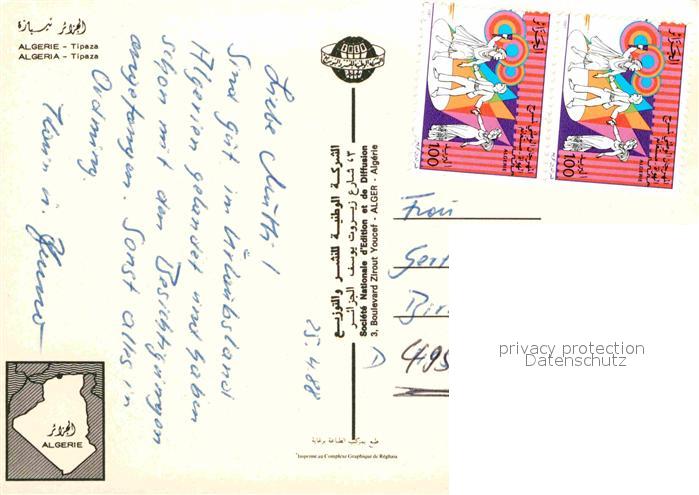 الجزائر تيبازة
ALGERIE - Tipaza
ALGERIA - Tipaza
25.4.88
Liebe Mutti!
Sind gut im Urlaubsland
Algerien gelandet und haben
schon mit den Besichtigungen
angefangen. Sonst alles in
Ordnung
الجزائر
ALGERIE
الشركة الوطنية للنشر والتوزيع
٣ شارع زيروت يوسف الجزائر
Société Nationale d'Edition et de Diffusion
3, Boulevard Zirout Youcef - ALGER - Algérie
طبع بمركب الطباعة برغاية
Imprimé au Complexe Graphique de Réghaia
الجزائر
100
ALGERIE
الجزائر
100
ALGERIE
Frau
Ger
Bir
D 495
privacy protection
Datenschutz